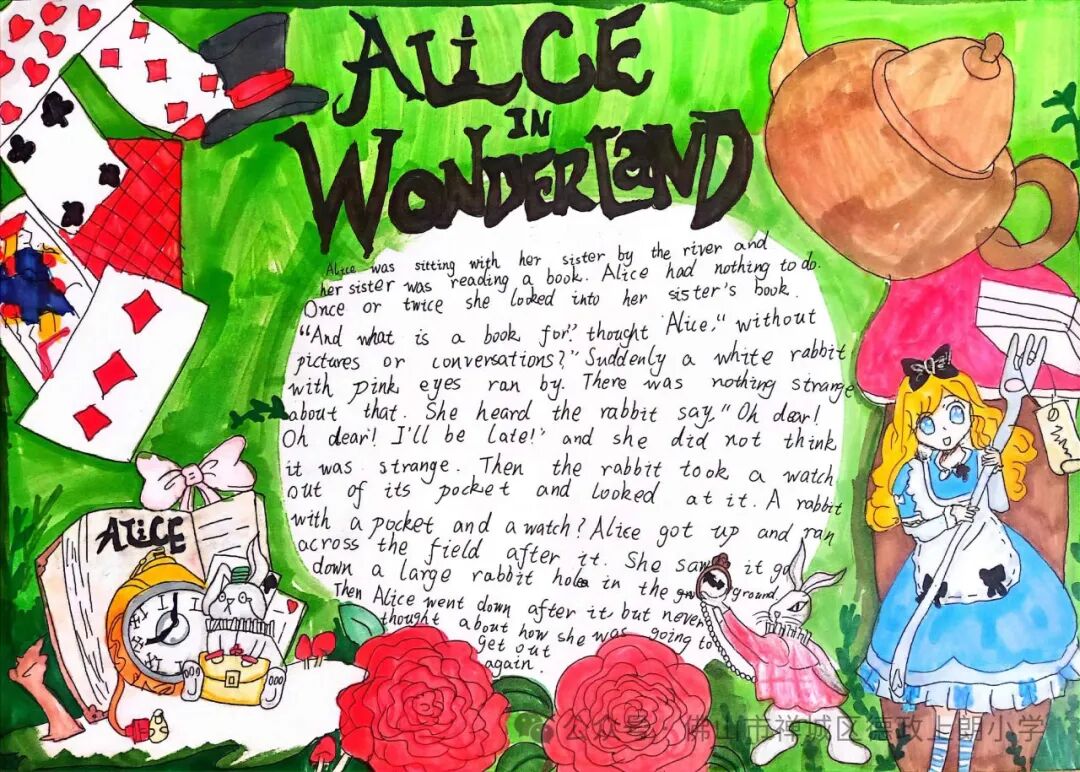 ALiCE
IN
WONDERLaND
Alice was sitting with her sister by the river and
her sister was reading a book. Alice had nothing to do.
Once or twice she looked into her sister's book.
"And what is a book for?" thought Alice," without
pictures or conversations?" Suddenly a white rabbit
with pink eyes ran by. There was nothing strange
about that. She heard the rabbit say," Oh dear!
Oh dear! I'll be late!" and she did not think
it was strange. Then the rabbit took a watch
out of its pocket and looked at it. A rabbit
with a pocket and a watch? Alice got up and ran
across the field after it. She saw it go
down a large rabbit hole in the ground.
Then Alice went down after it but never
thought about how she was going to
get out
again.
ALiCE
公众号·佛山市禅城区德政上朗小学